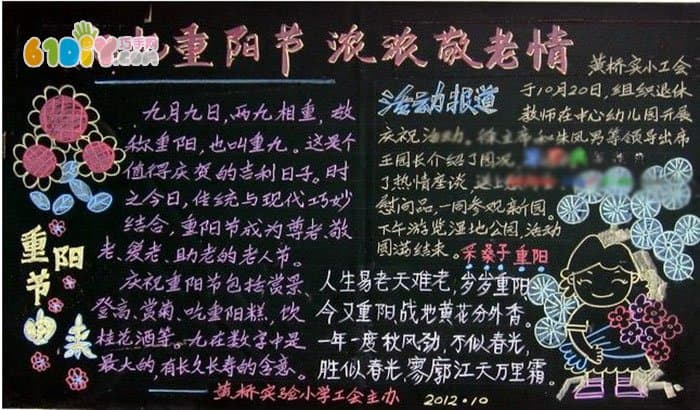 61DiY巧手网
.com
九重阳节 浓浓敬老情
九月九日,两九相重,故
称重阳,也叫重九。这是个
值得庆贺的吉利日子。时
之今日,传统与现代巧妙
结合,重阳节成为尊老、敬
老、爱老、助老的老人节。
庆祝重阳节包括赏景、
登高、赏菊、吃重阳糕、饮
桂花酒等。九在数字中是
最大的,有长久长寿的含意。
重阳节
由来
活动报道
黄桥实小工会
于10月20日,组织退休
教师在中心幼儿园开展
庆祝活动。徐主席和朱凤男等领导出席
王园长介绍了园况,
了热情座谈,送上
慰问品,一同参观新园。
下午游览湿地公园,活动
圆满结束。
采桑子 重阳
人生易老天难老,岁岁重阳,
今又重阳,战地黄花分外香。
一年一度秋风劲,不似春光,
胜似春光,寥廓江天万里霜。
黄桥实验小学工会主办 2012.10